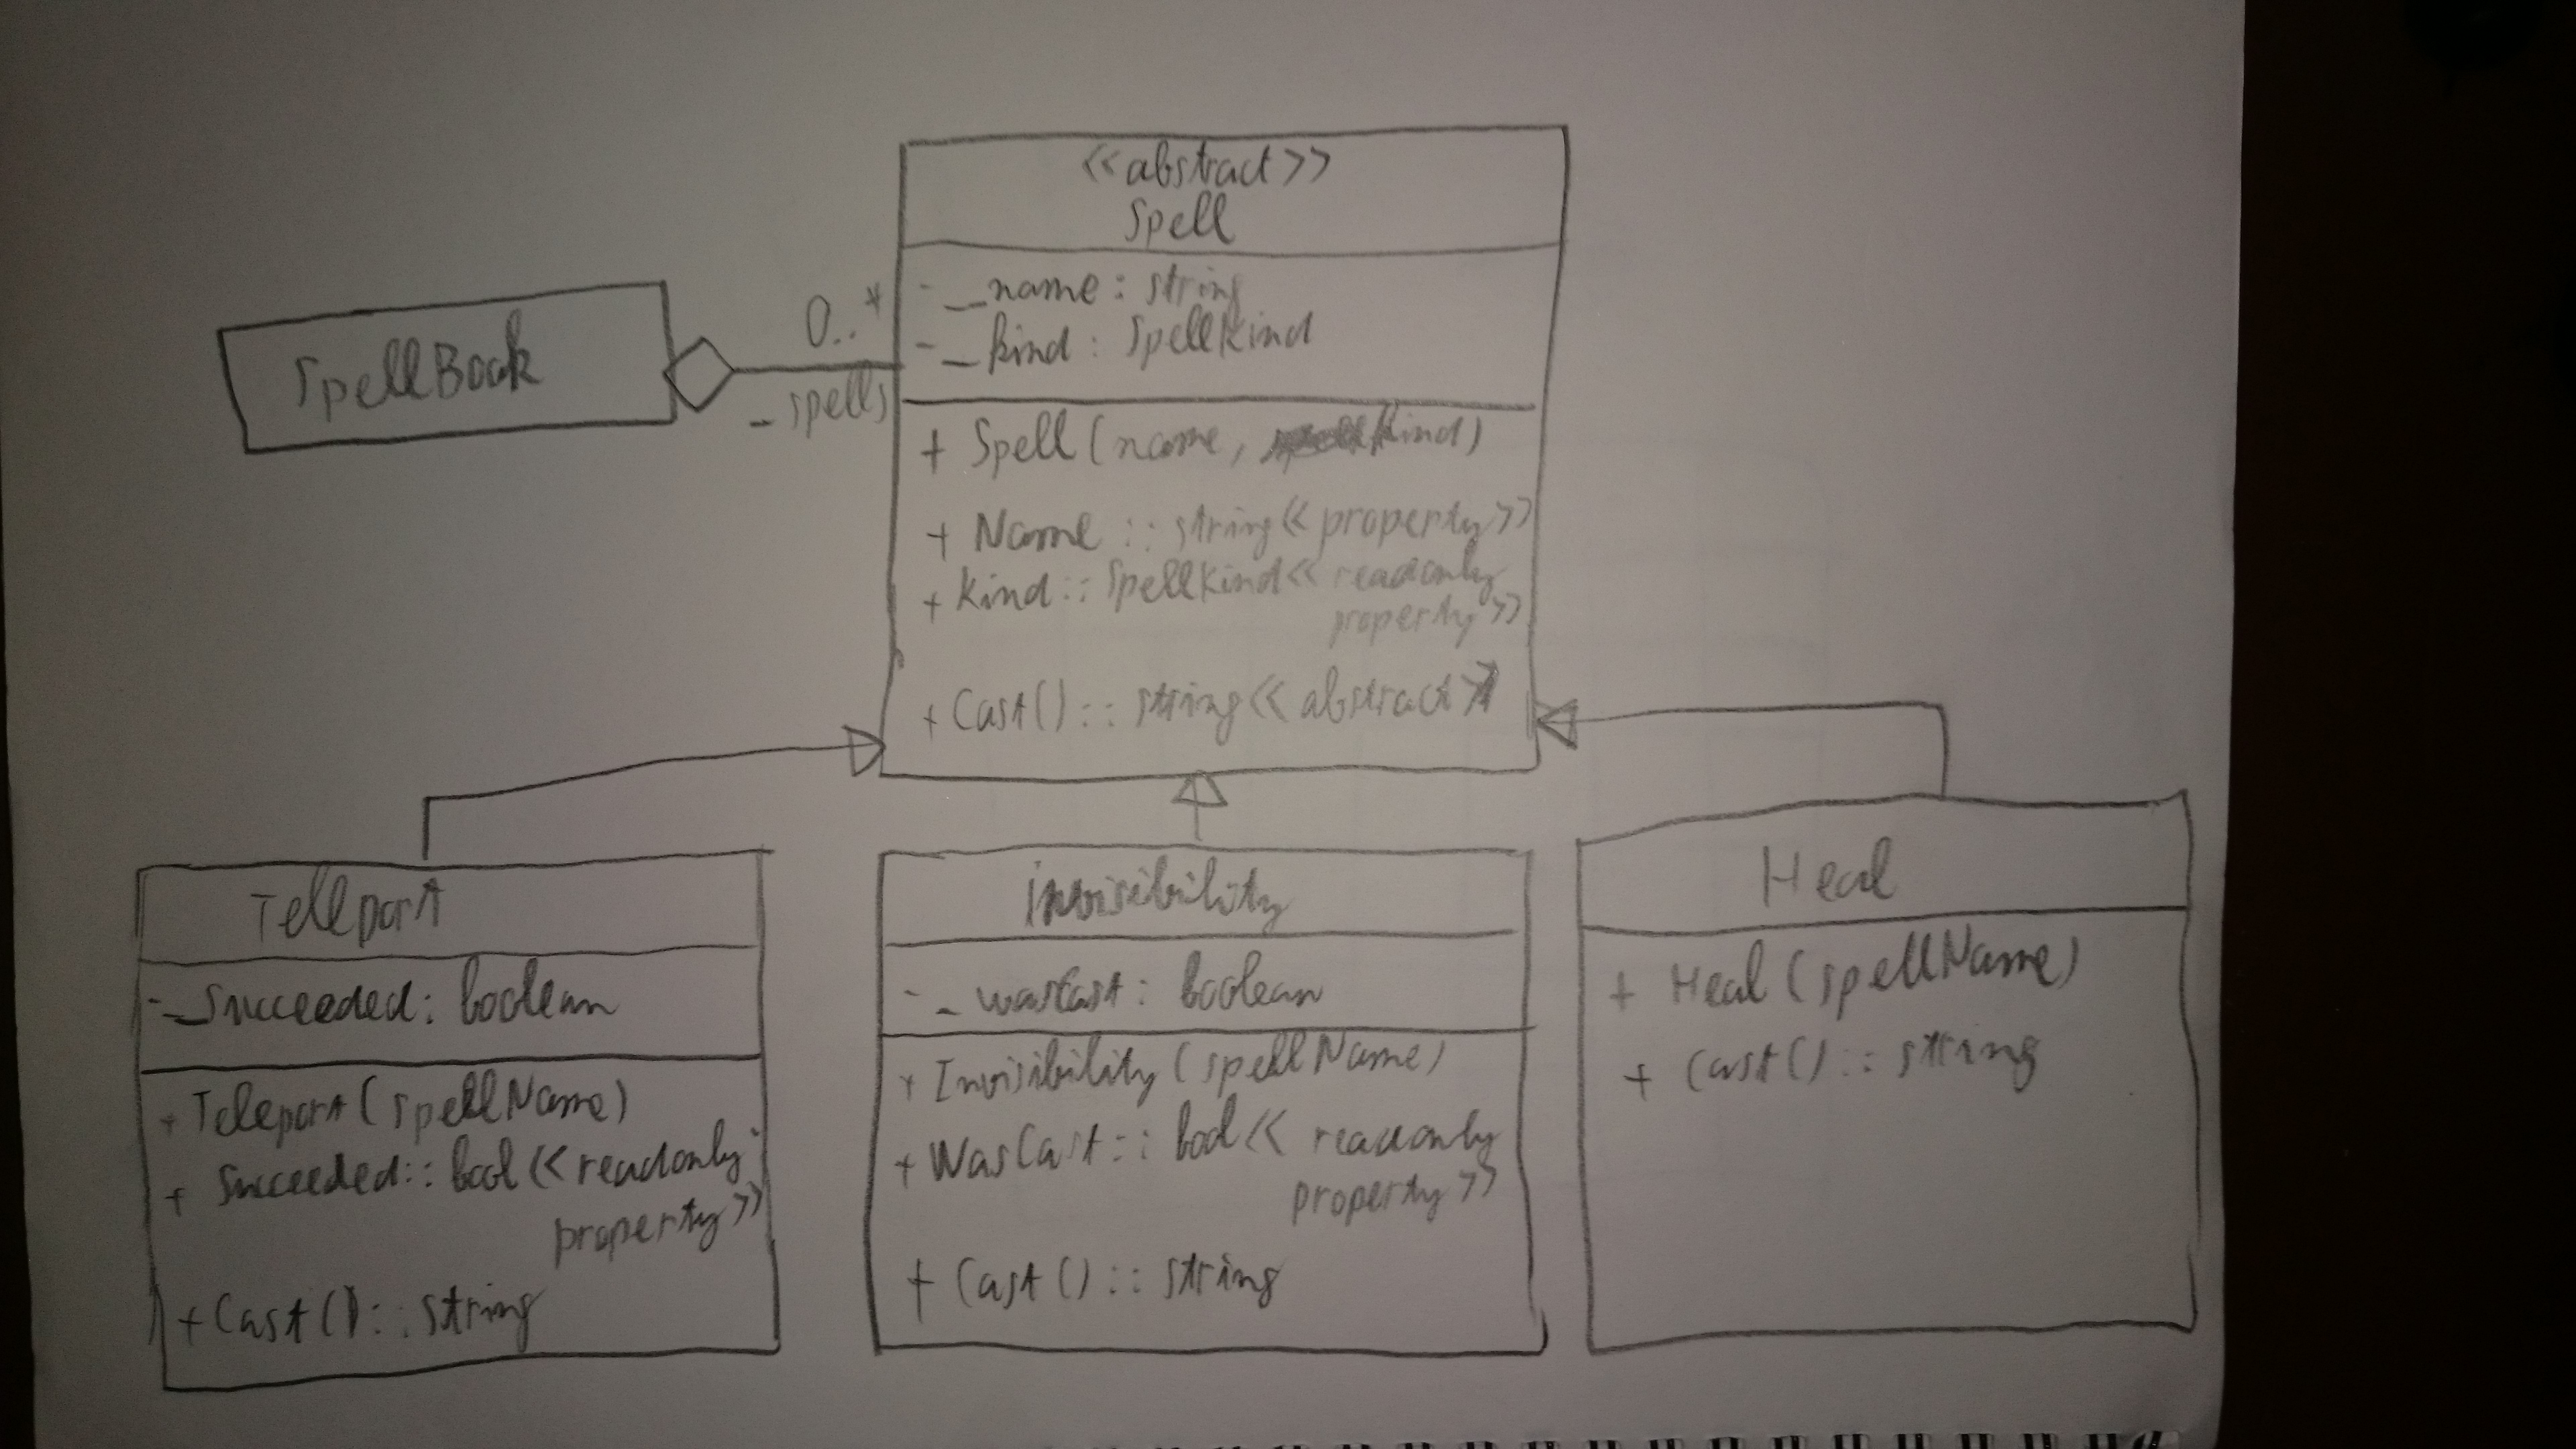 <<abstract>>
Spell
- _name: string
- _kind: SpellKind
+ Spell(name, kind)
+ Name :: string<<property>>
+ Kind :: SpellKind<<readonly
property>>
+ Cast() :: string<<abstract>>
SpellBook
0..*
- spells
Teleport
- _Succeeded: boolean
+ Teleport(spellName)
+ Succeeded:: bool<<readonly
property>>
+ Cast() :: string
Invisibility
- _wasCast: boolean
+ Invisibility(spellName)
+ WasCast:: bool<<readonly
property>>
+ Cast() :: string
Heal
+ Heal(spellName)
+ Cast() :: string